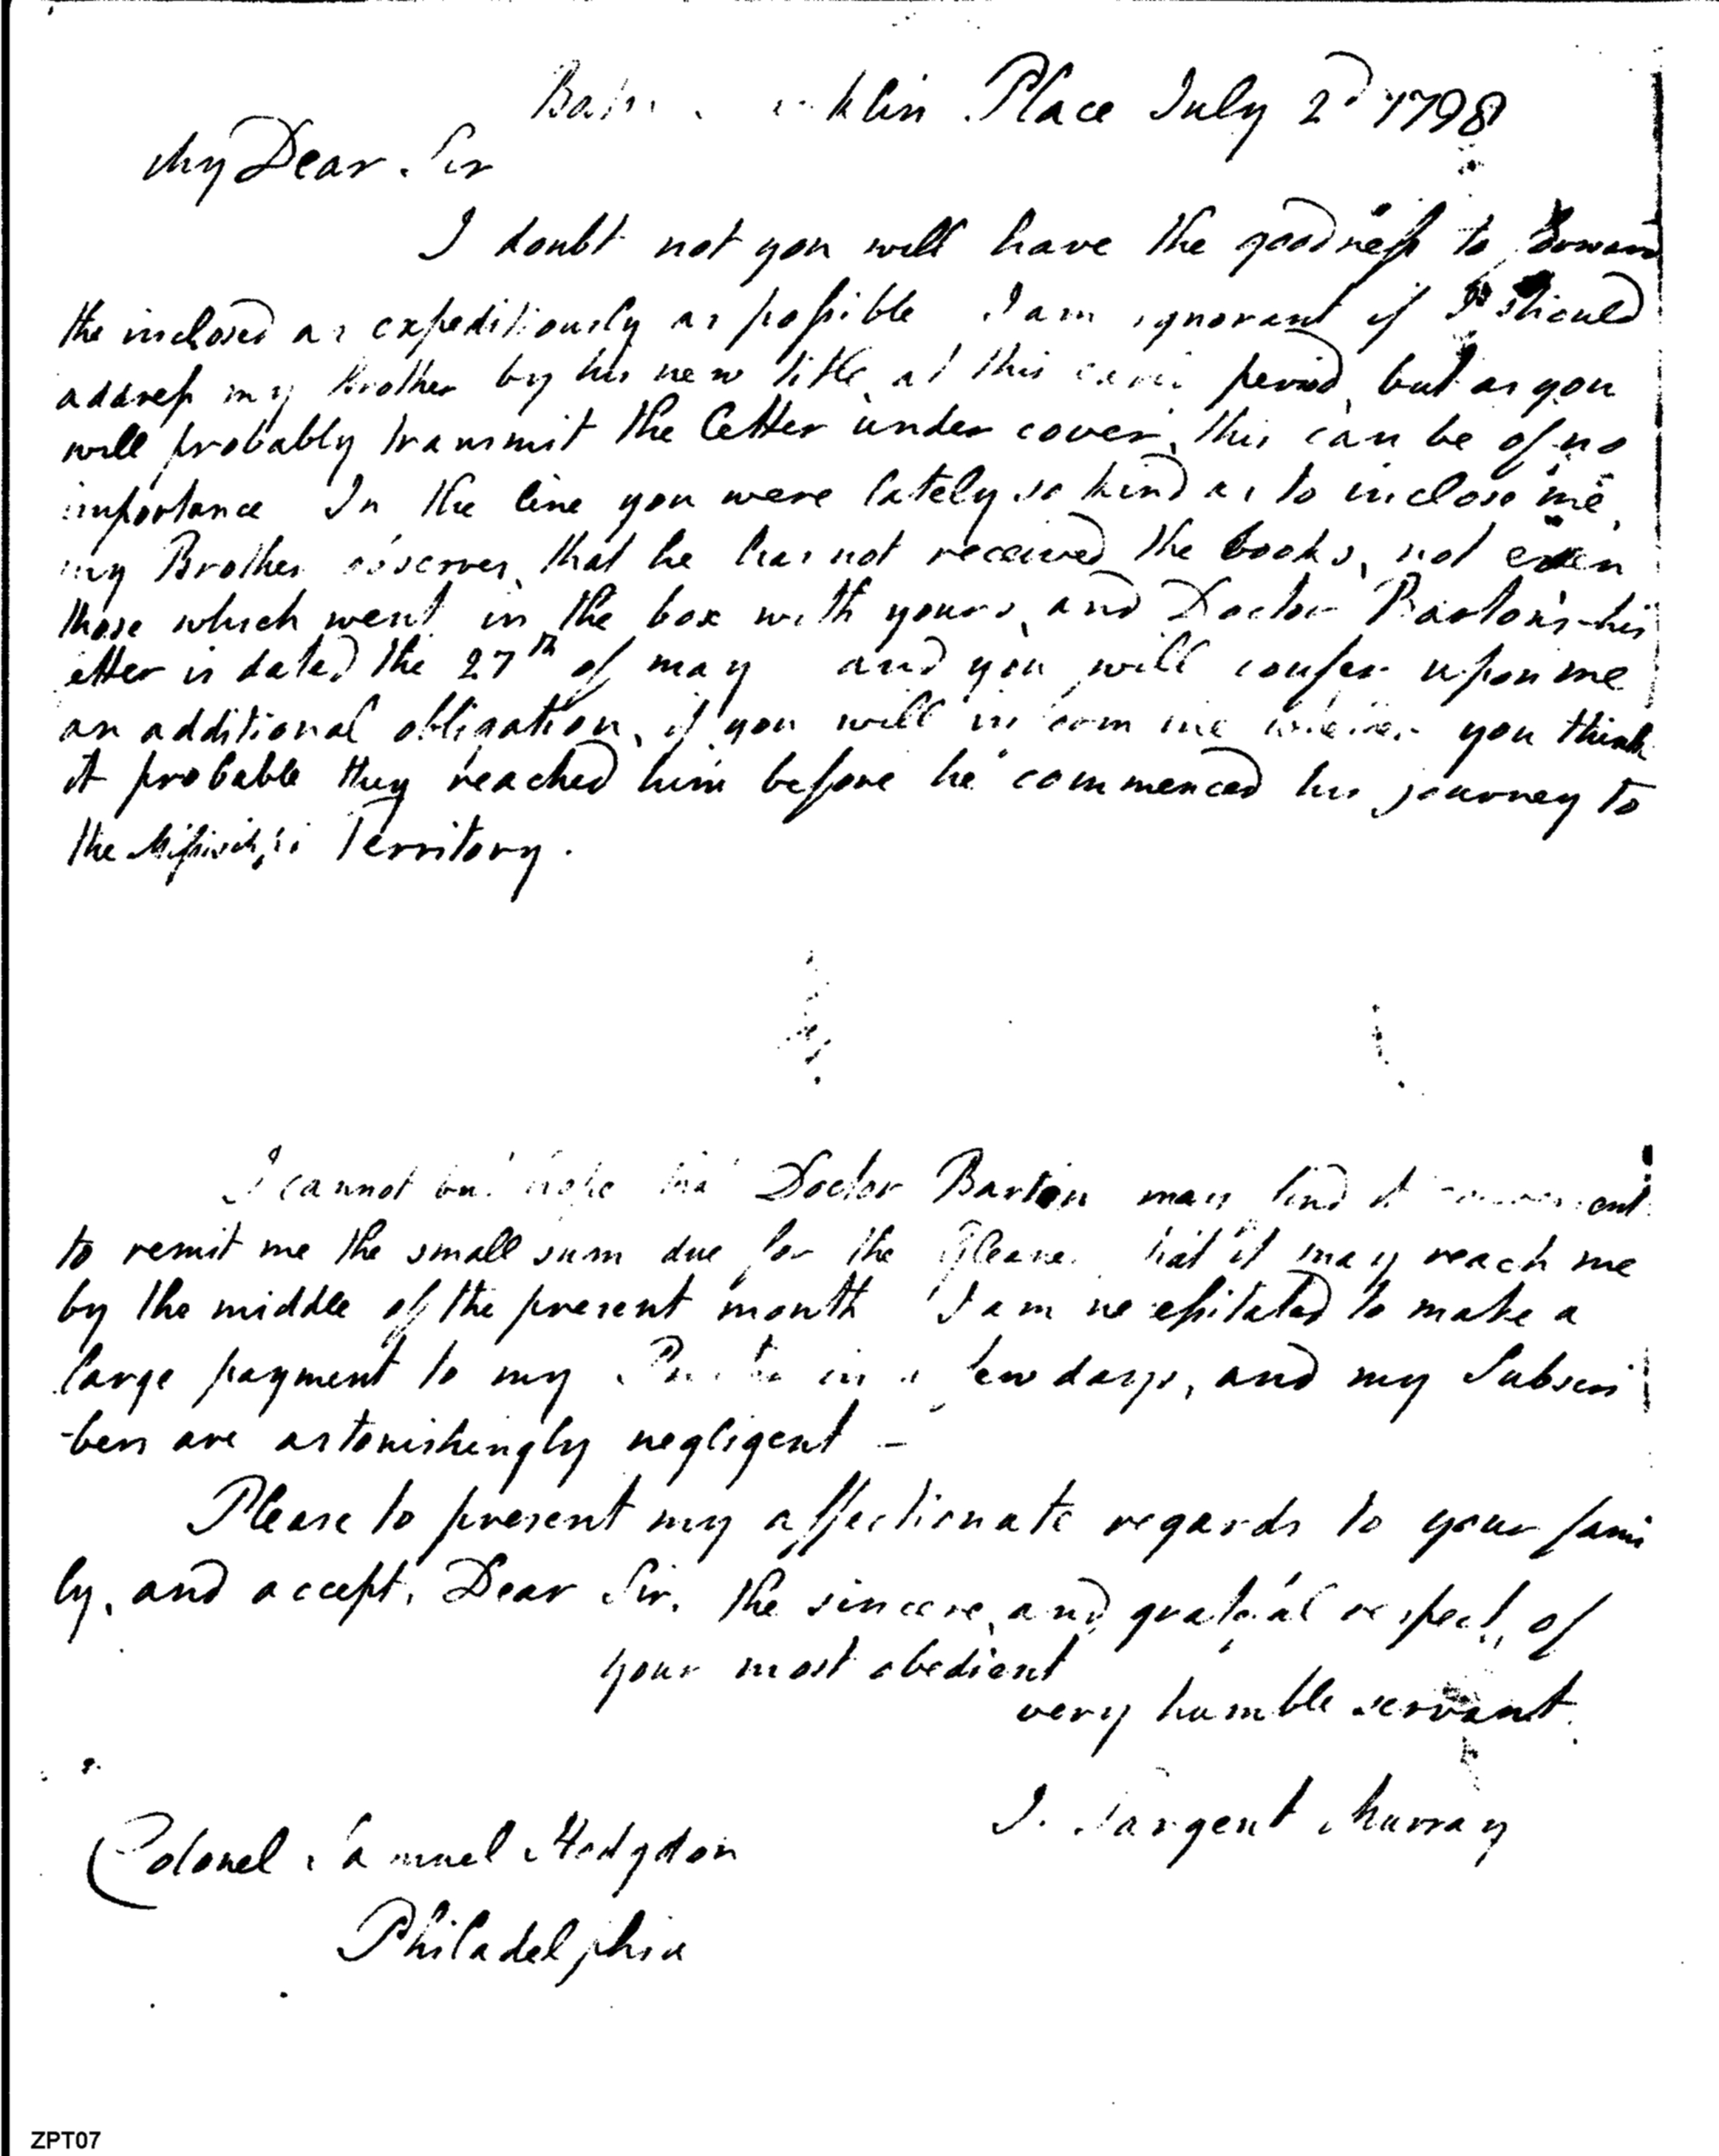 Place July 2d 1798
My Dear Sir
I doubt not you will have the goodness to forward
the inclosed as expeditiously as possible I am ignorant if I should
address my Brother by his new title at this period, but as you
will probably transmit the letter under cover, this can be of no
importance In the line you were lately so kind as to inclose me,
my Brother observes, that he has not received the books, not even
those which went in the box with yours, and Doctor Barton's his
etter is dated the 27th of may and you will confer upon me
an additional obligation, if you will inform me you think
it probable they reached him before he commenced his journey to
the Territory.
I cannot but hope Doctor Barton may find it
to remit me the small sum due for the that it may reach me
by the middle of the present month I am necessitated to make a
large payment to my in few days, and my Subscri
-bers are astonishingly negligent -
Please to present my affectionate regards to your fami
ly, and accept, Dear Sir, the sincere, and grateful respect, of
your most obedient
very humble servant.
J. Sargent Murray
Colonel Samuel Hodgdon
Philadelphia
ZPT07